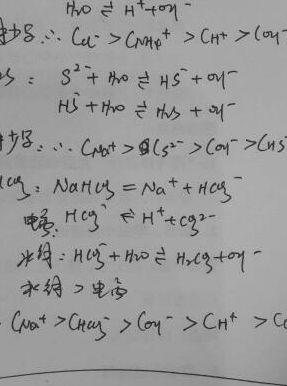 H₂O ⇌ H⁺+OH⁻
∴ C_Cl⁻ > C_NH₄⁺ > C_H⁺ > C_OH⁻
S²⁻ + H₂O ⇌ HS⁻ + OH⁻
HS⁻ + H₂O ⇌ H₂S + OH⁻
∴ C_Na⁺ > C_S²⁻ > C_OH⁻ > C_HS
NaHCO₃ = Na⁺ + HCO₃⁻
电离: HCO₃⁻ ⇌ H⁺ + CO₃²⁻
水解: HCO₃⁻ + H₂O ⇌ H₂CO₃ + OH⁻
水解 > 电离
C_Na⁺ > C_HCO₃⁻ > C_OH⁻ > C_H⁺ > C